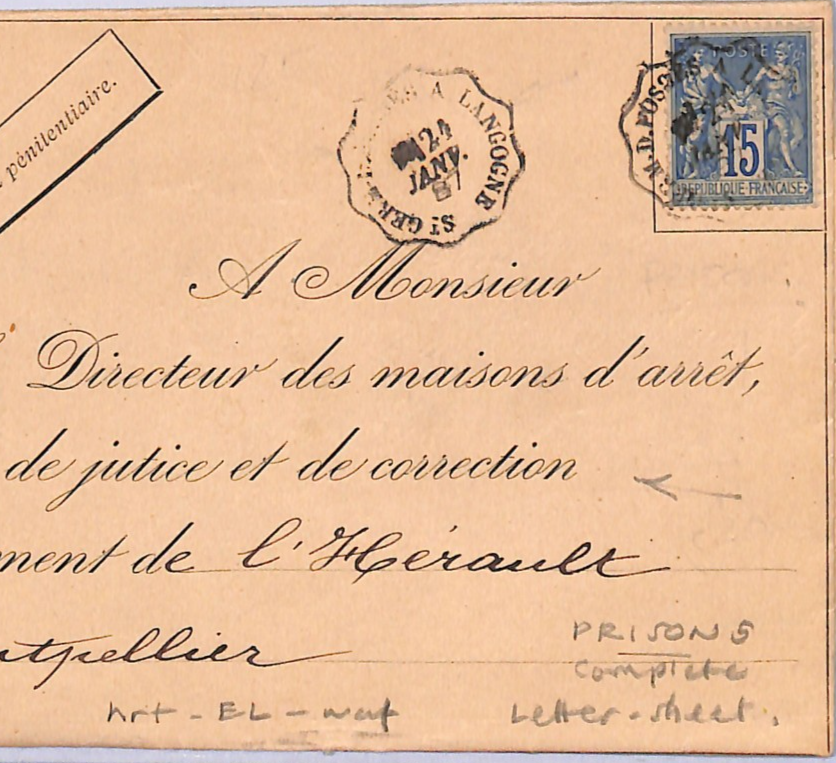 pénitentiaire.
A LANGOGNE
24
JANV.
87
ST GERM
POSTE
15
REPUBLIQUE-FRANÇAISE
A Monsieur
Directeur des maisons d'arrêt,
de jutice et de correction
ment de l'Hérault
ntpellier
PRISONS
complete
Letter-sheet.